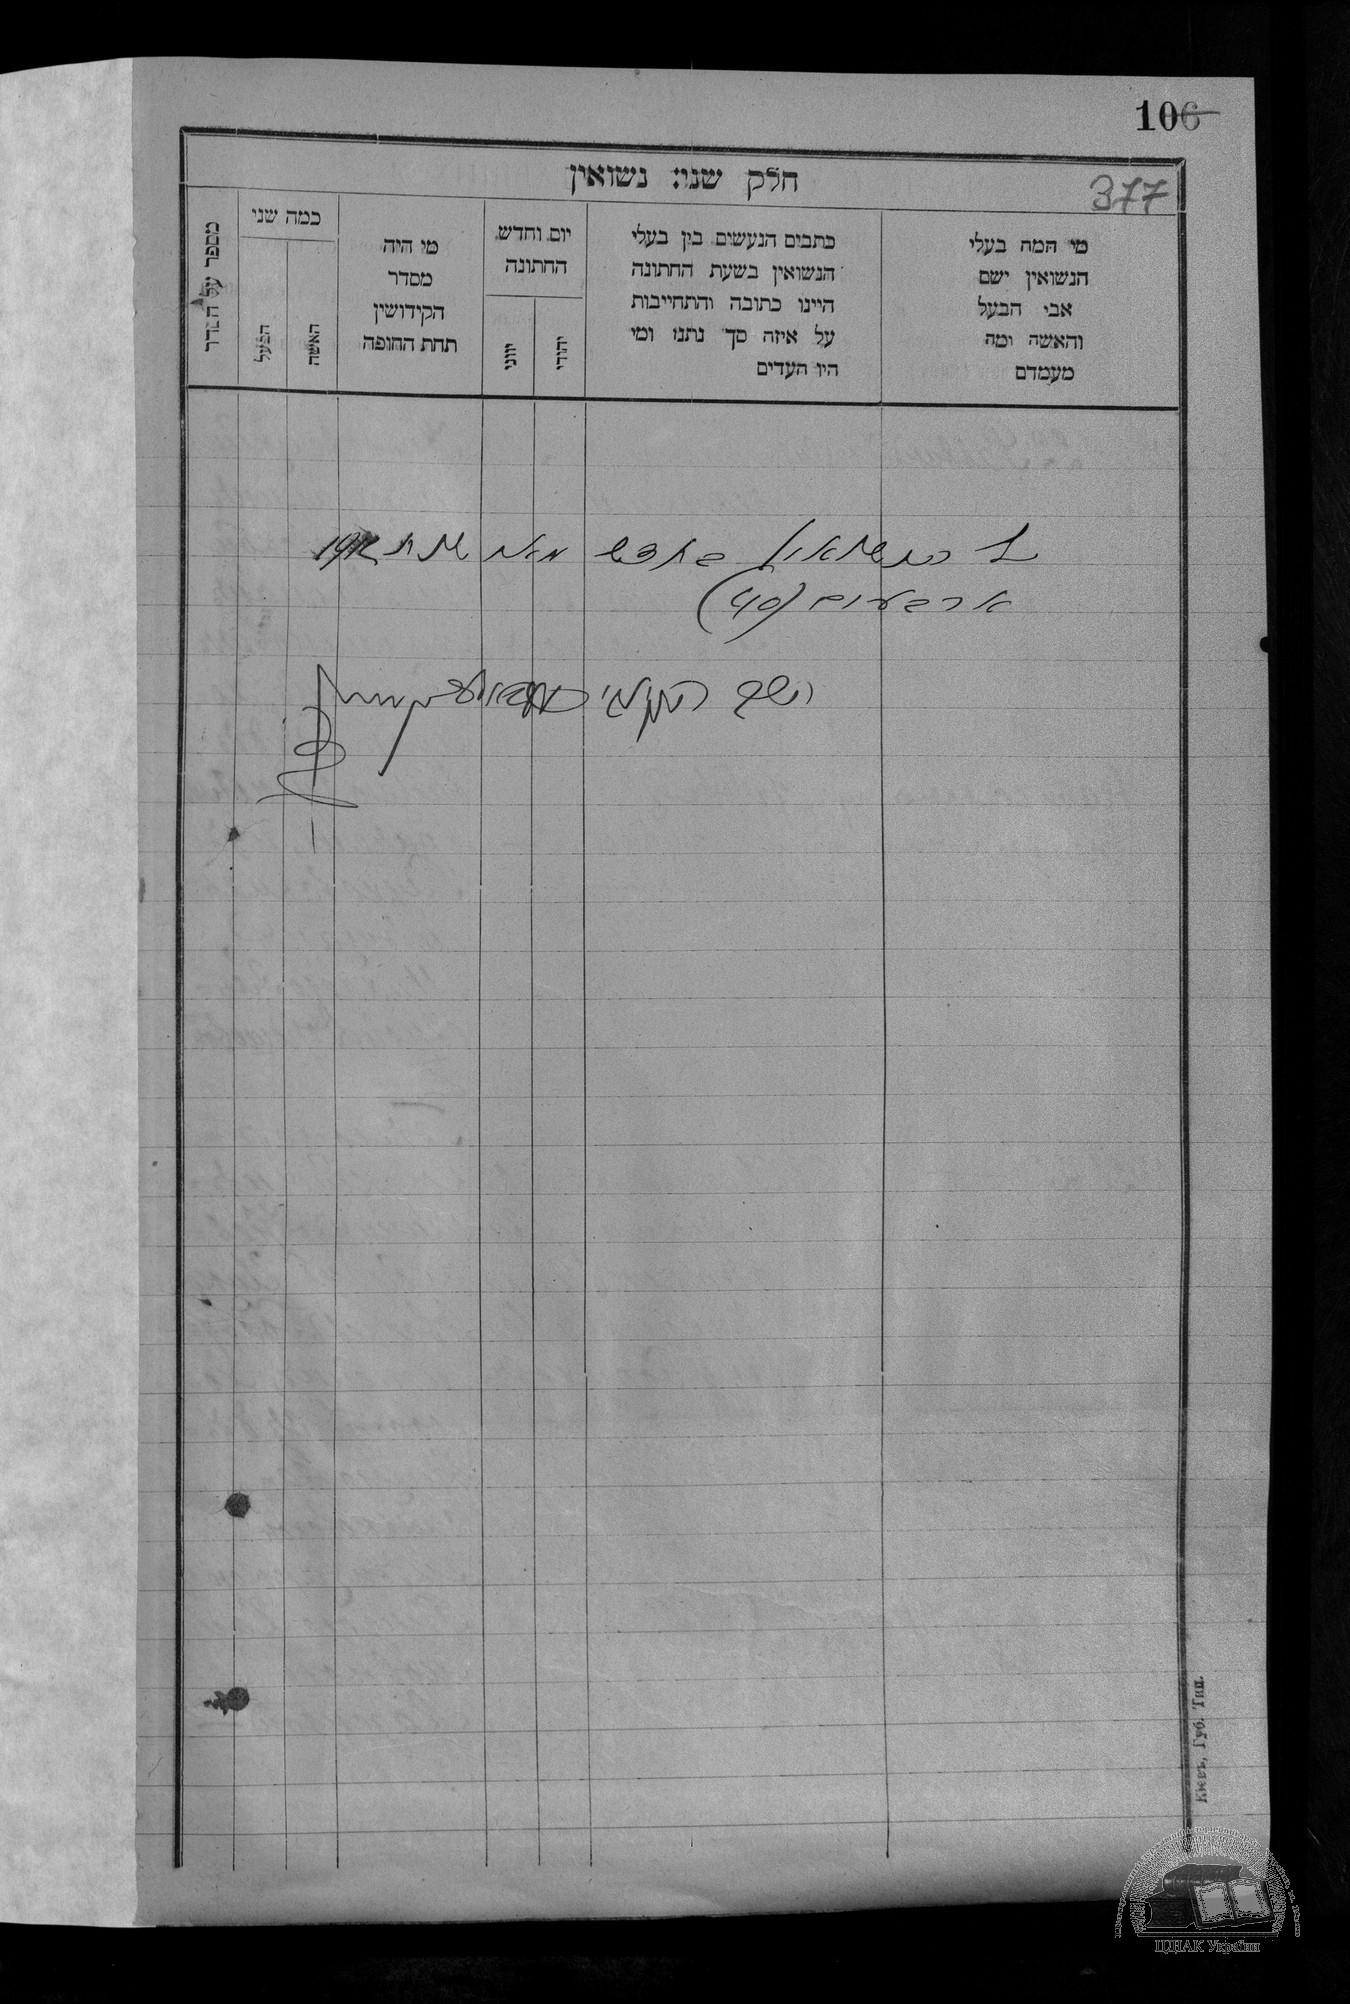 106
חלק שני: נשואין
377
מי המה בעלי
הנשואין ישם
אבי הבעל
והאשה ומה
מעמדם
כתבים הנעשים בין בעלי
הנשואין בשעת החתונה
היינו כתובה והתחייבות
על איזה סך נתנו ומי
היו העדים
יום וחדש
החתונה
יהודי
יווני
מי היה
מסדר
הקידושין
תחת החופה
כמה שני
האשה
הבעל
מספר על הסדר
הנשואין בחדש מאי שנת
ארבעים (40)
Кіевъ, Губ. Тип.
ЦДІАК України